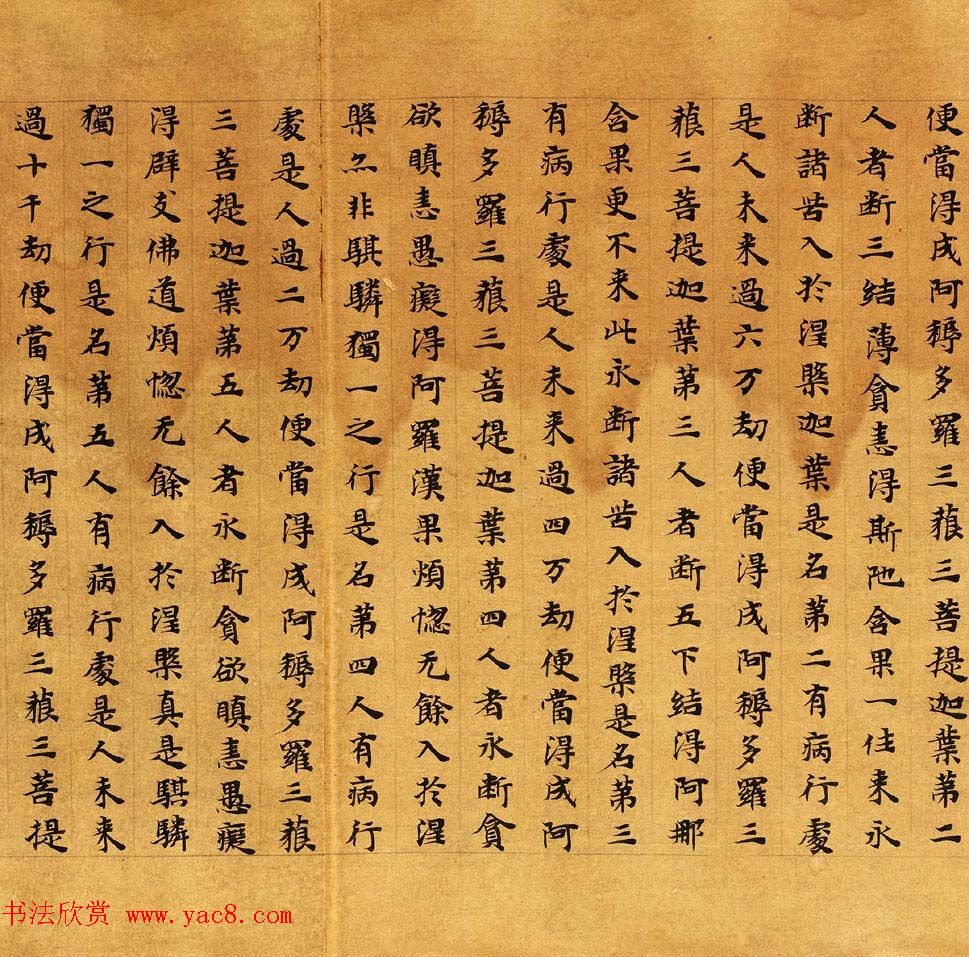 便當得成阿耨多羅三藐三菩提迦葉第二
人者斷三結薄貪恚得斯陁含果一往来永
断諸苦入於涅槃迦葉是名第二有病行處
是人未来過六万劫便當得成阿耨多羅三
藐三菩提迦葉第三人者断五下結得阿那
含果更不来此永断諸苦入於涅槃是名第三
有病行處是人未来過四万劫便當得成阿
耨多羅三藐三菩提迦葉第四人者永断貪
欲瞋恚愚癡得阿羅漢果煩惱无餘入於涅
槃亦非騏驎獨一之行是名第四人有病行
處是人過二万劫便當得成阿耨多羅三藐
三菩提迦葉第五人者永断貪欲瞋恚愚癡
得辟支佛道煩惱无餘入於涅槃真是騏驎
獨一之行是名第五人有病行處是人未来
過十千劫便當得成阿耨多羅三藐三菩提
书法欣赏 www.yac8.com